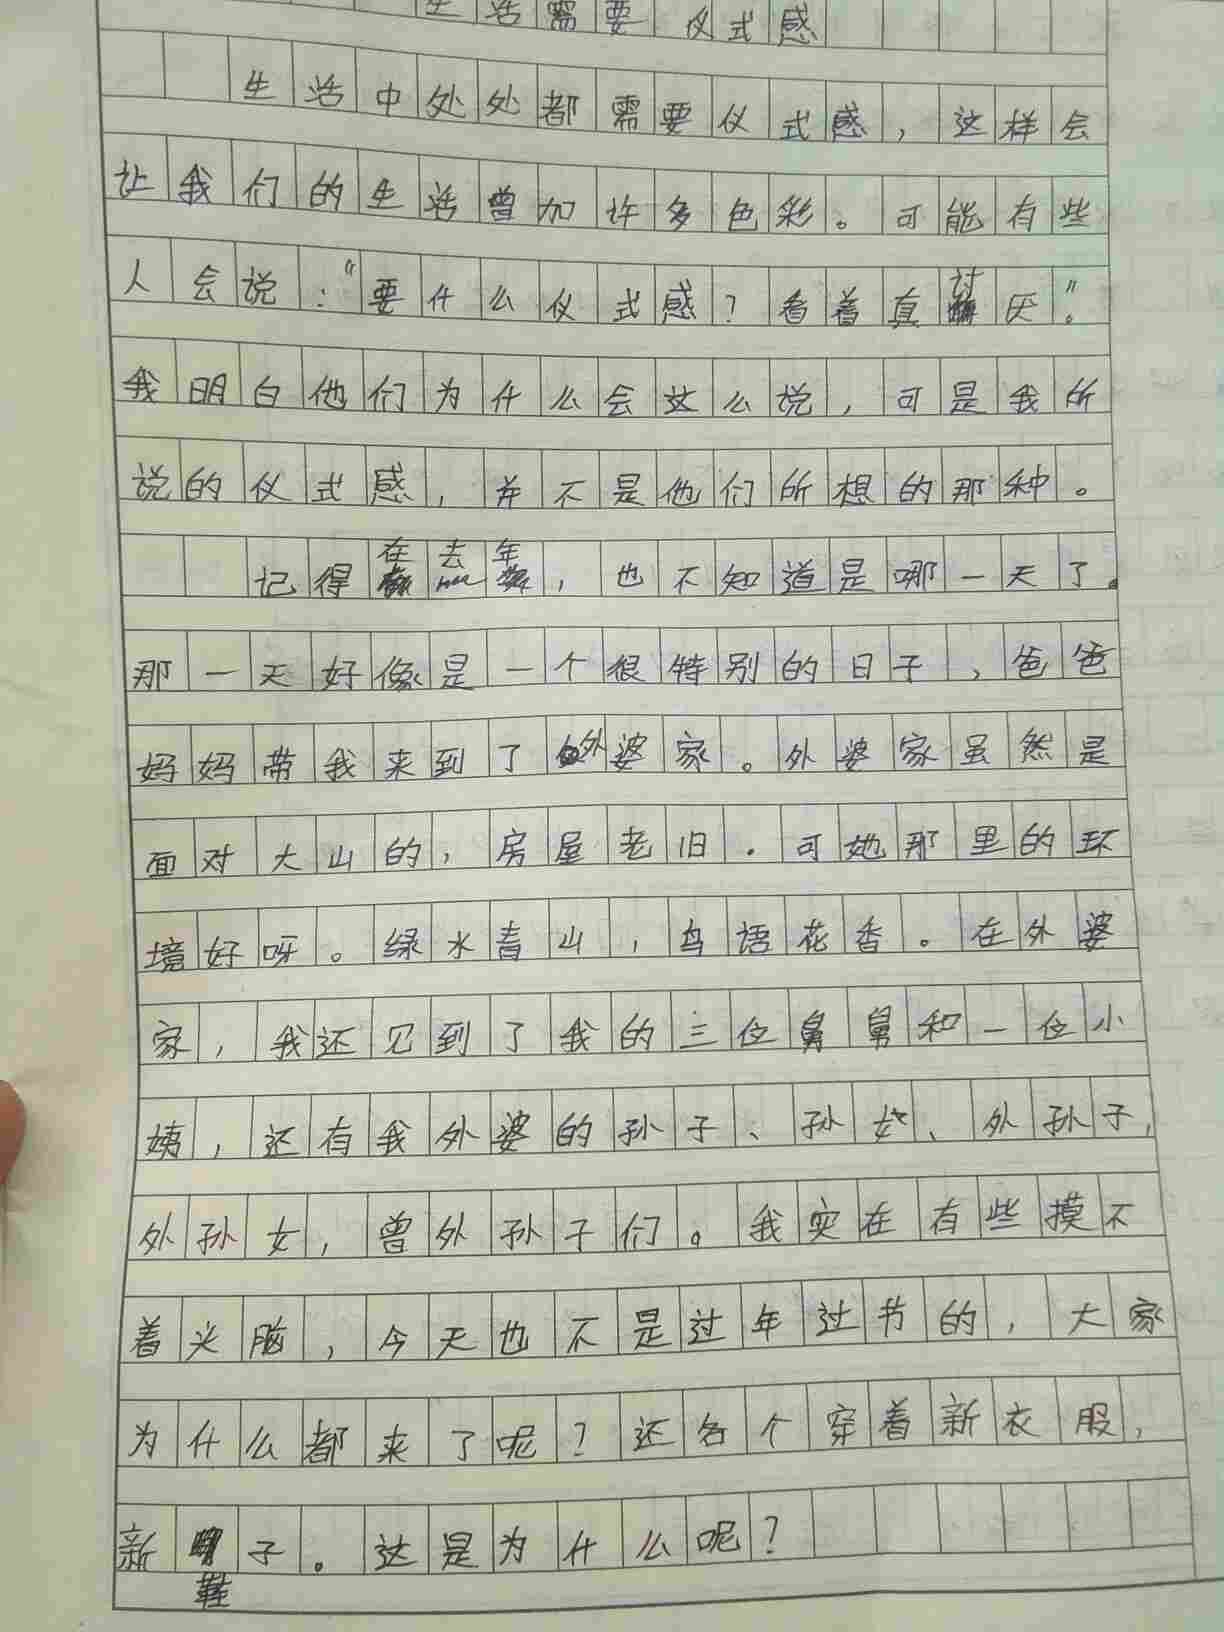 生活需要仪式感
生活中处处都需要仪式感，这样会
让我们的生活曾加许多色彩。可能有些
人会说：“要什么仪式感？看着真讨厌”。
我明白他们为什么会这么说，可是我所
说的仪式感，并不是他们所想的那种。
记得在去年，也不知道是哪一天了。
那一天好像是一个很特别的日子，爸爸
妈妈带我来到了外婆家。外婆家虽然是
面对大山的，房屋老旧．可她那里的环
境好呀。绿水青山，鸟语花香。在外婆
家，我还见到了我的三位舅舅和一位小
姨，还有我外婆的孙子、孙女、外孙子，
外孙女，曾外孙子们。我实在有些摸不
着头脑，今天也不是过年过节的，大家
为什么都来了呢？还各个穿着新衣服，
新鞋子。这是为什么呢？